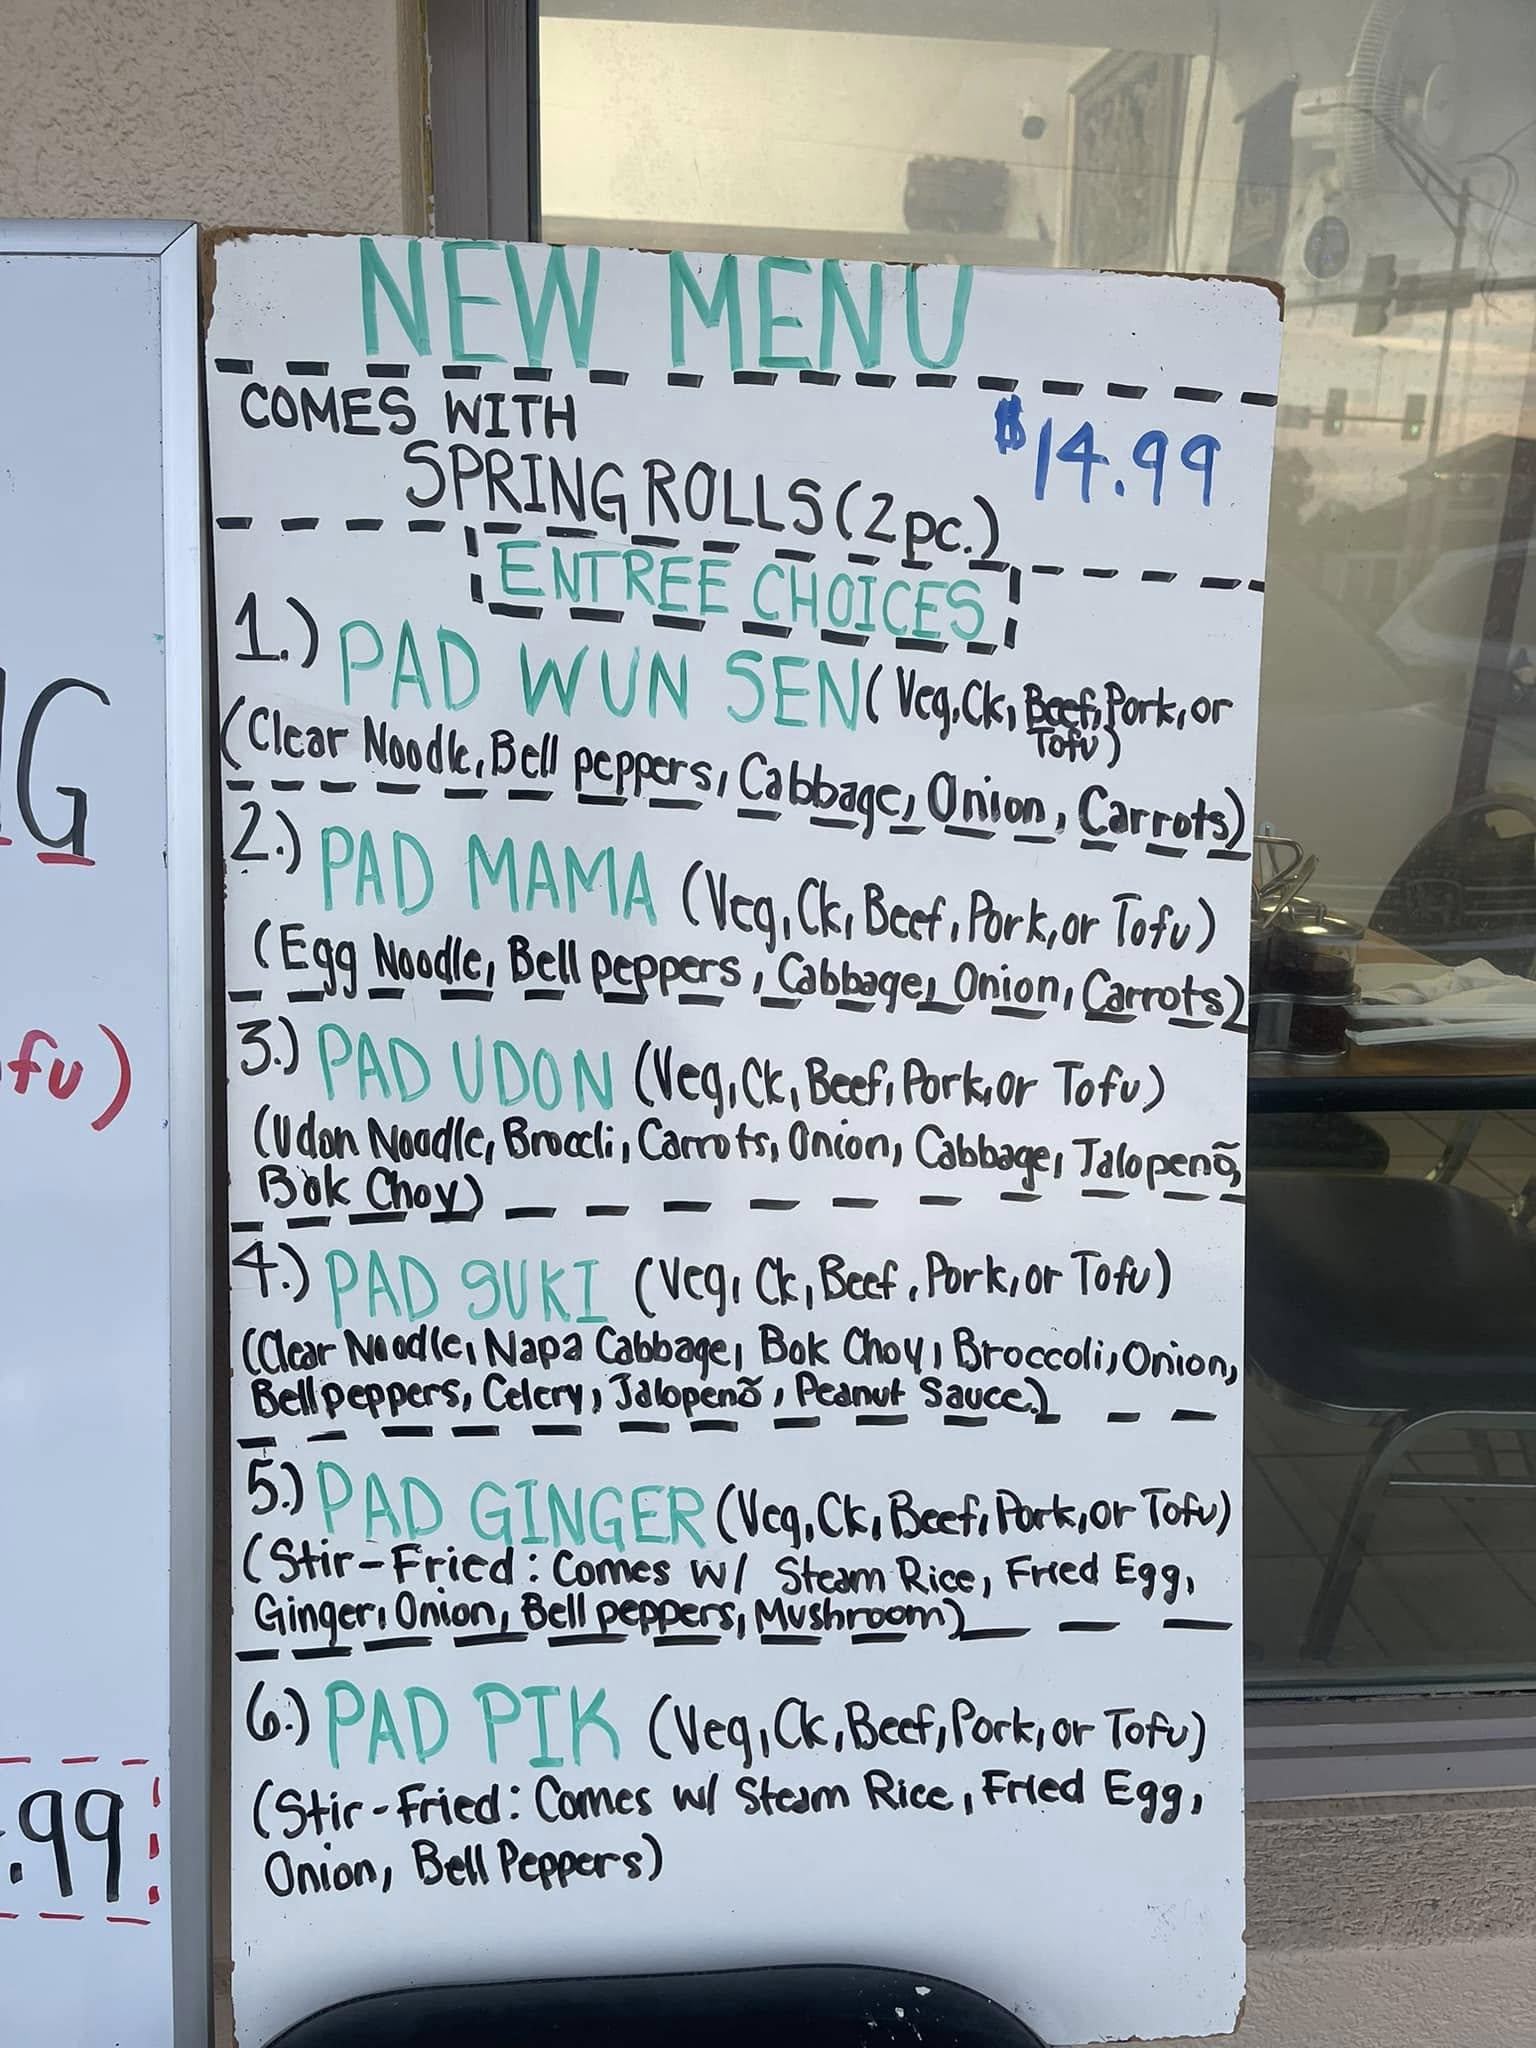 NEW MENU
COMES WITH
SPRING ROLLS (2 pc.)
$14.99
ENTREE CHOICES
1.) PAD WUN SEN (Veg, Ck, Beef, Pork, or
Tofu)
(Clear Noodle, Bell peppers, Cabbage, Onion, Carrots)
2.) PAD MAMA (Veg, Ck, Beef, Pork, or Tofu)
(Egg Noodle, Bell peppers, Cabbage, Onion, Carrots)
3.) PAD UDON (Veg, Ck, Beef, Pork, or Tofu)
(Udon Noodle, Broccli, Carrots, Onion, Cabbage, Jalopenõ,
Bok Choy)
4.) PAD SUKI (Veg, Ck, Beef, Pork, or Tofu)
(Clear Noodle, Napa Cabbage, Bok Choy, Broccoli, Onion,
Bell peppers, Celery, Jalopenõ, Peanut Sauce.)
5.) PAD GINGER (Veg, Ck, Beef, Pork, or Tofu)
(Stir-Fried: Comes w/ Steam Rice, Fried Egg,
Ginger, Onion, Bell peppers, Mushroom)
6.) PAD PIK (Veg, Ck, Beef, Pork, or Tofu)
(Stir-Fried: Comes w/ Steam Rice, Fried Egg,
Onion, Bell Peppers)
G
fu)
.99